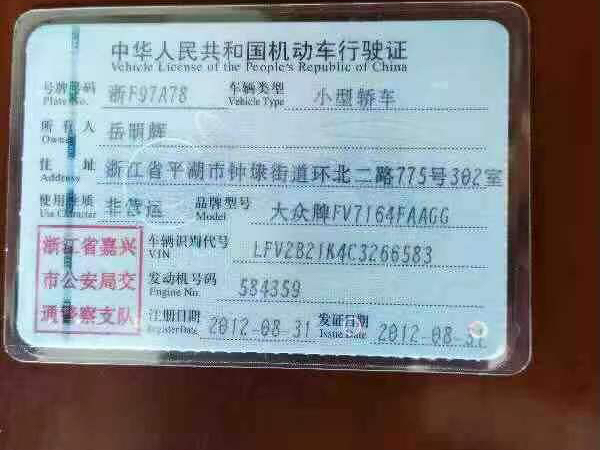 中华人民共和国机动车行驶证
Vehicle License of the People's Republic of China
号牌号码 浙F97A78 车辆类型 小型轿车
Plate No. Vehicle Type
所有人 岳明辉
Owner
住址 浙江省平湖市钟埭街道环北二路775号302室
Address
使用性质 非营运 品牌型号 大众牌FV7164FAAGG
Use Character Model
浙江省嘉兴
市公安局交
通警察支队
车辆识别代号 LFV2B21K4C3266583
VIN
发动机号码 584359
Engine No.
注册日期 2012-08-31 发证日期 2012-08-31
Register Date Issue Date